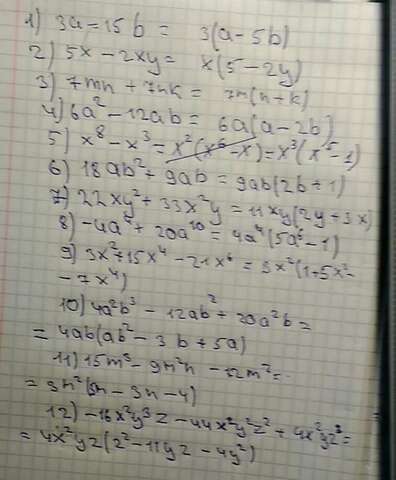 1) 3a-15b = 3(a-5b)
2) 5x-2xy= x(5-2y)
3) 7mn+7nk= 7n(n+k)
4) 6a²-12ab= 6a(a-2b)
5) x⁸-x³=x²(x⁶-x)=x³(x⁵-1)
6) 18ab²+9ab=9ab(2b+1)
7) 22xy²+33x²y=11xy(2y+3x)
8) -4a⁴+20a¹⁰=4a⁴(5a⁶-1)
9) 3x²+15x⁴-21x⁶=3x²(1+5x²-
-7x⁴)
10) 4a²b³-12ab²+20a²b=
=4ab(ab²-3b+5a)
11) 15m³-9m²n-12m²=
=3m²(5m-3n-4)
12) -16x²y³z-44x²y²z²+4x²yz³=
=4x²yz(z²-11yz-4y²)